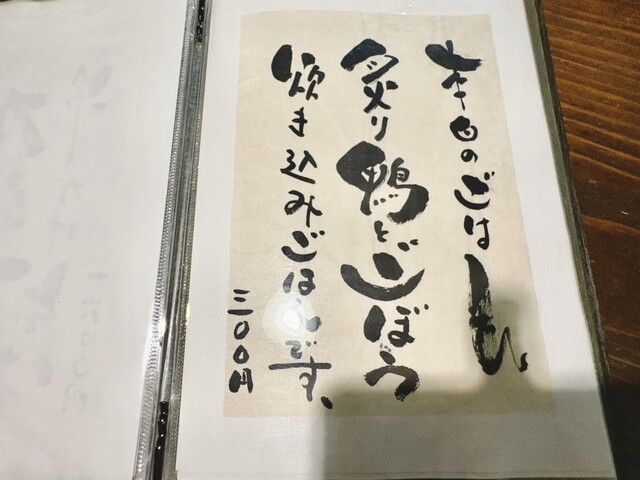 本日のごはん
炙り鴨とごぼう
炊き込みごはんです、
三〇〇円